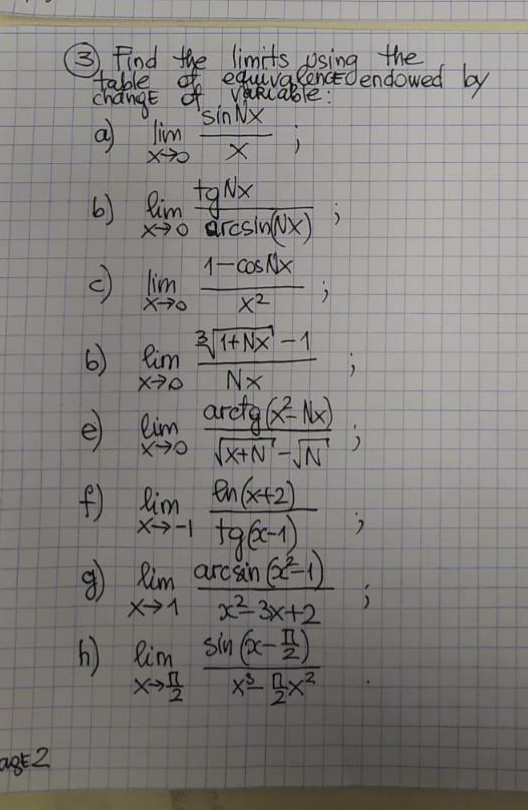 ③ Find the limits using the
table of equivalence endowed by
changE of vaRiable:
a) lim x→0 sinNx / x ;
b) lim x→0 tgNx / arcsin(Nx) ;
c) lim x→0 1-cosNx / x² ;
b) lim x→0 ∛(1+Nx) - 1 / Nx ;
e) lim x→0 arctg(x²-Nx) / √(x+N) - √N ;
f) lim x→-1 ln(x+2) / tg(x-1) ;
g) lim x→1 arcsin(x²-1) / x²-3x+2 ;
h) lim x→π/2 sin(x-π/2) / x³-π/2 x² .
agE 2